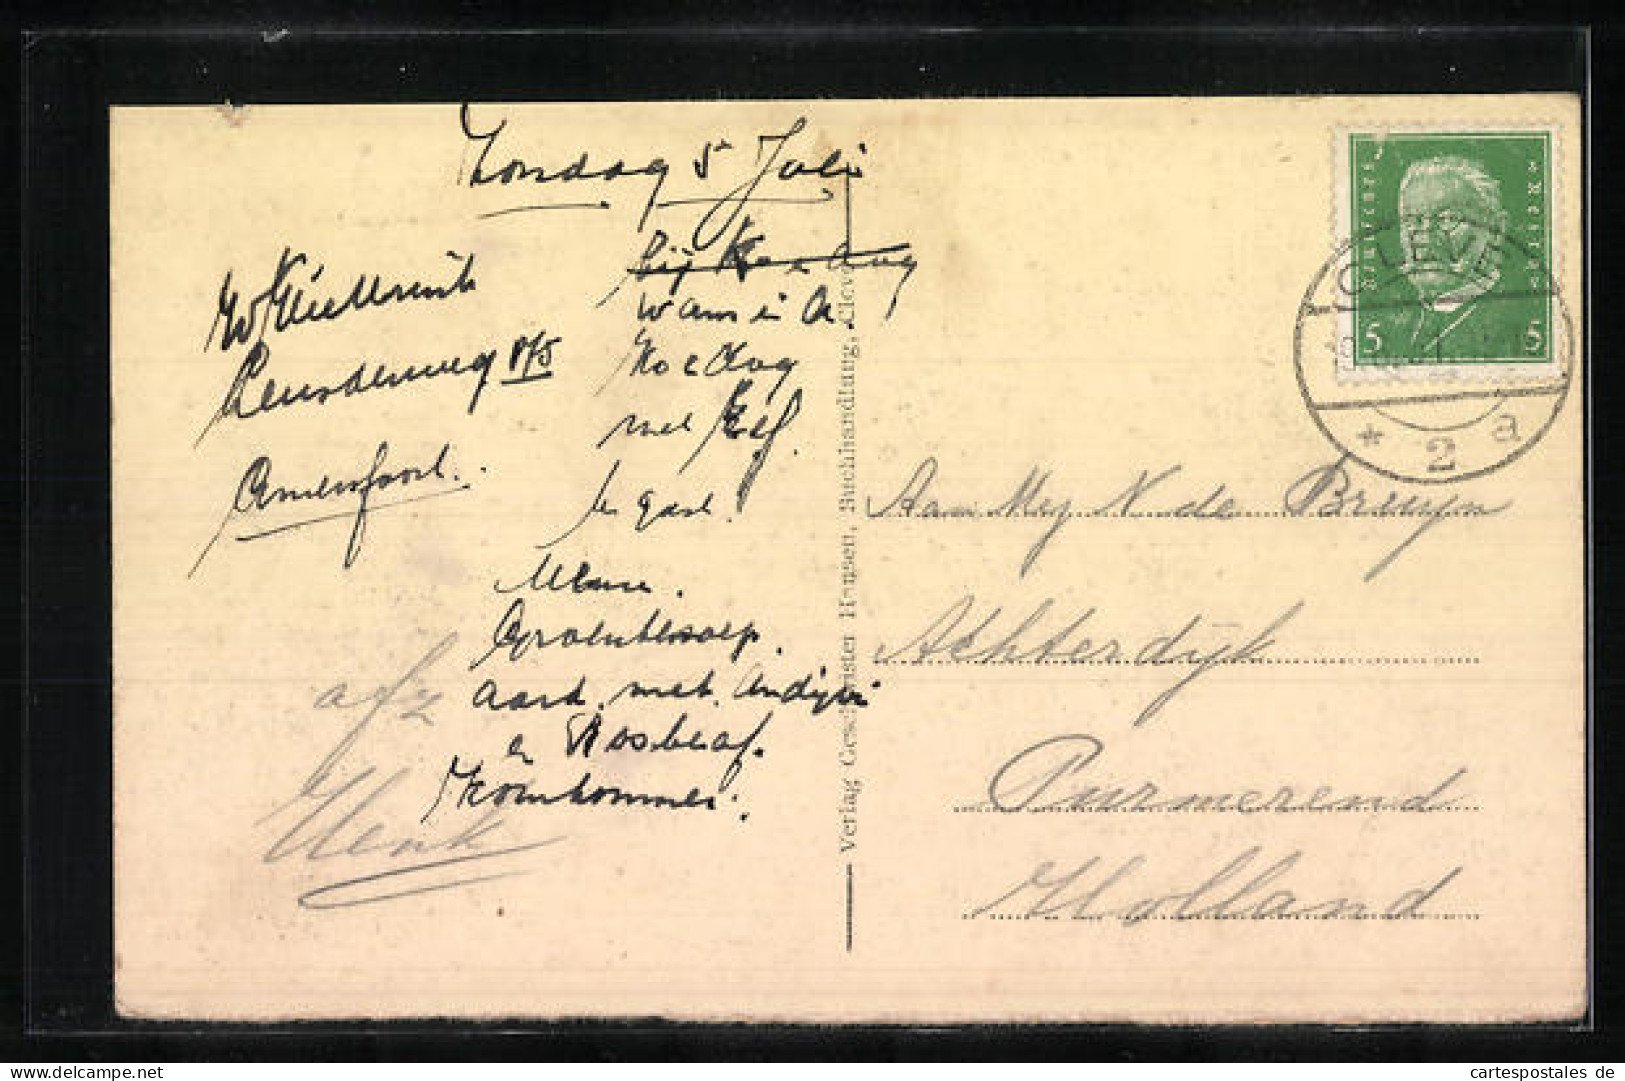 Zondag 5 Juli
bij
waar in A.
Koedag
met Elf.
te gast.
Menu.
Groentesoep.
aard. met Andijvi
en Rosbeaf.
Komkommer.
Leusderweg 85
Amersfoort.
afz
Henk
Verlag Geschwister Hansen, Buchhandlung, Cleve
Deutsches Reich
5 5
CLEVE
* 2 a
Aan Mej N. de Bruyn
Achterdijk
Purmerend
Holland
cartespostales de